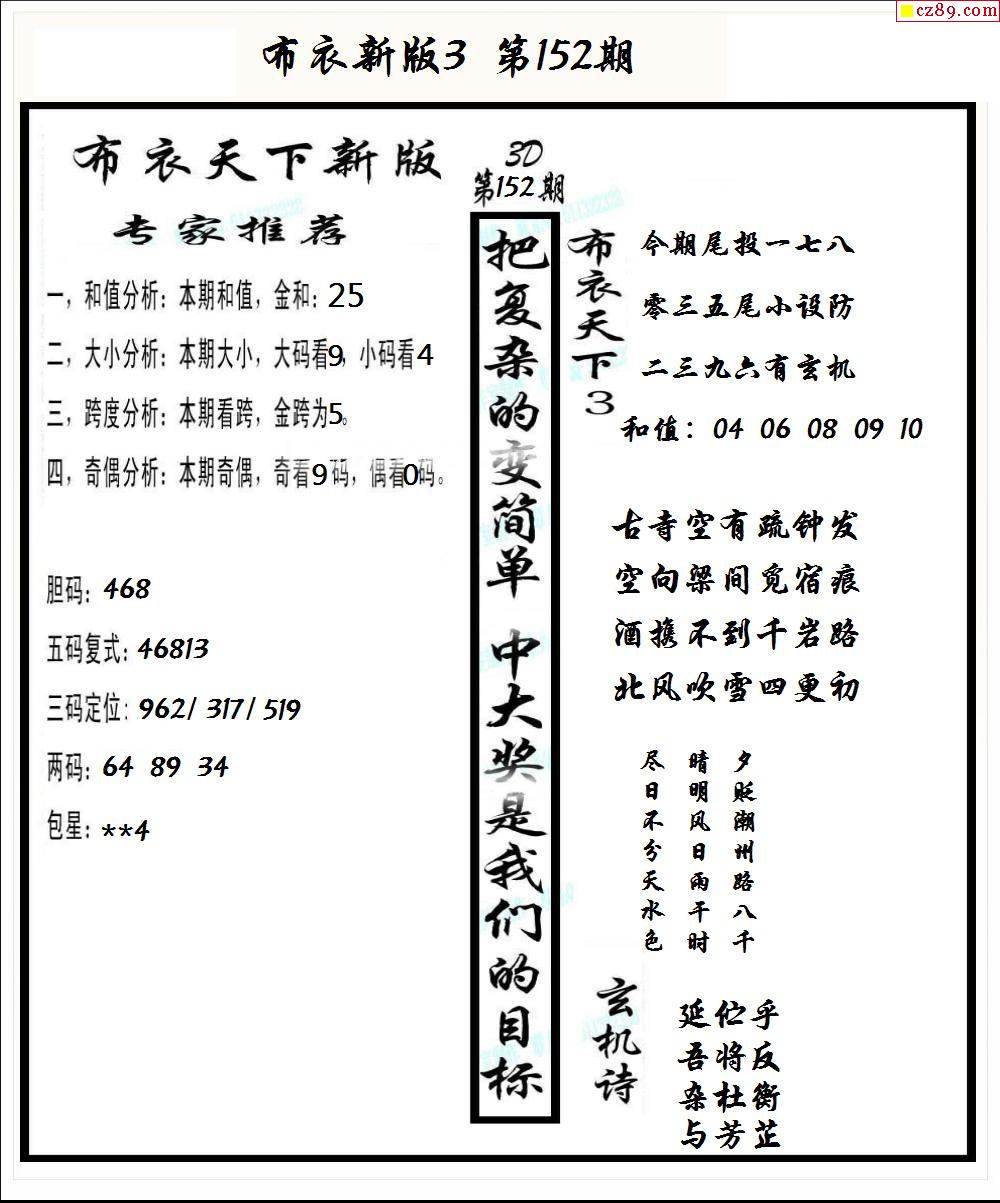 cz89.com
布衣新版3 第152期
布衣天下新版
专家推荐
一，和值分析：本期和值，金和：25
二，大小分析：本期大小，大码看9，小码看4
三，跨度分析：本期看跨，金跨为5。
四，奇偶分析：本期奇偶，奇看9码，偶看0码。
胆码：468
五码复式：46813
三码定位：962/ 317/ 519
两码：64 89 34
包星：**4
3D
第152期
把复杂的变简单 中大奖是我们的目标
布衣天下3
今期尾投一七八
零三五尾小设防
二三九六有玄机
和值：04 06 08 09 10
古寺空有疏钟发
空向梁间觅宿痕
酒携不到千岩路
北风吹雪四更初
夕贬潮州路八千
晴明风日雨干时
尽日不分天水色
玄机诗
延伫乎
吾将反
杂杜衡
与芳芷